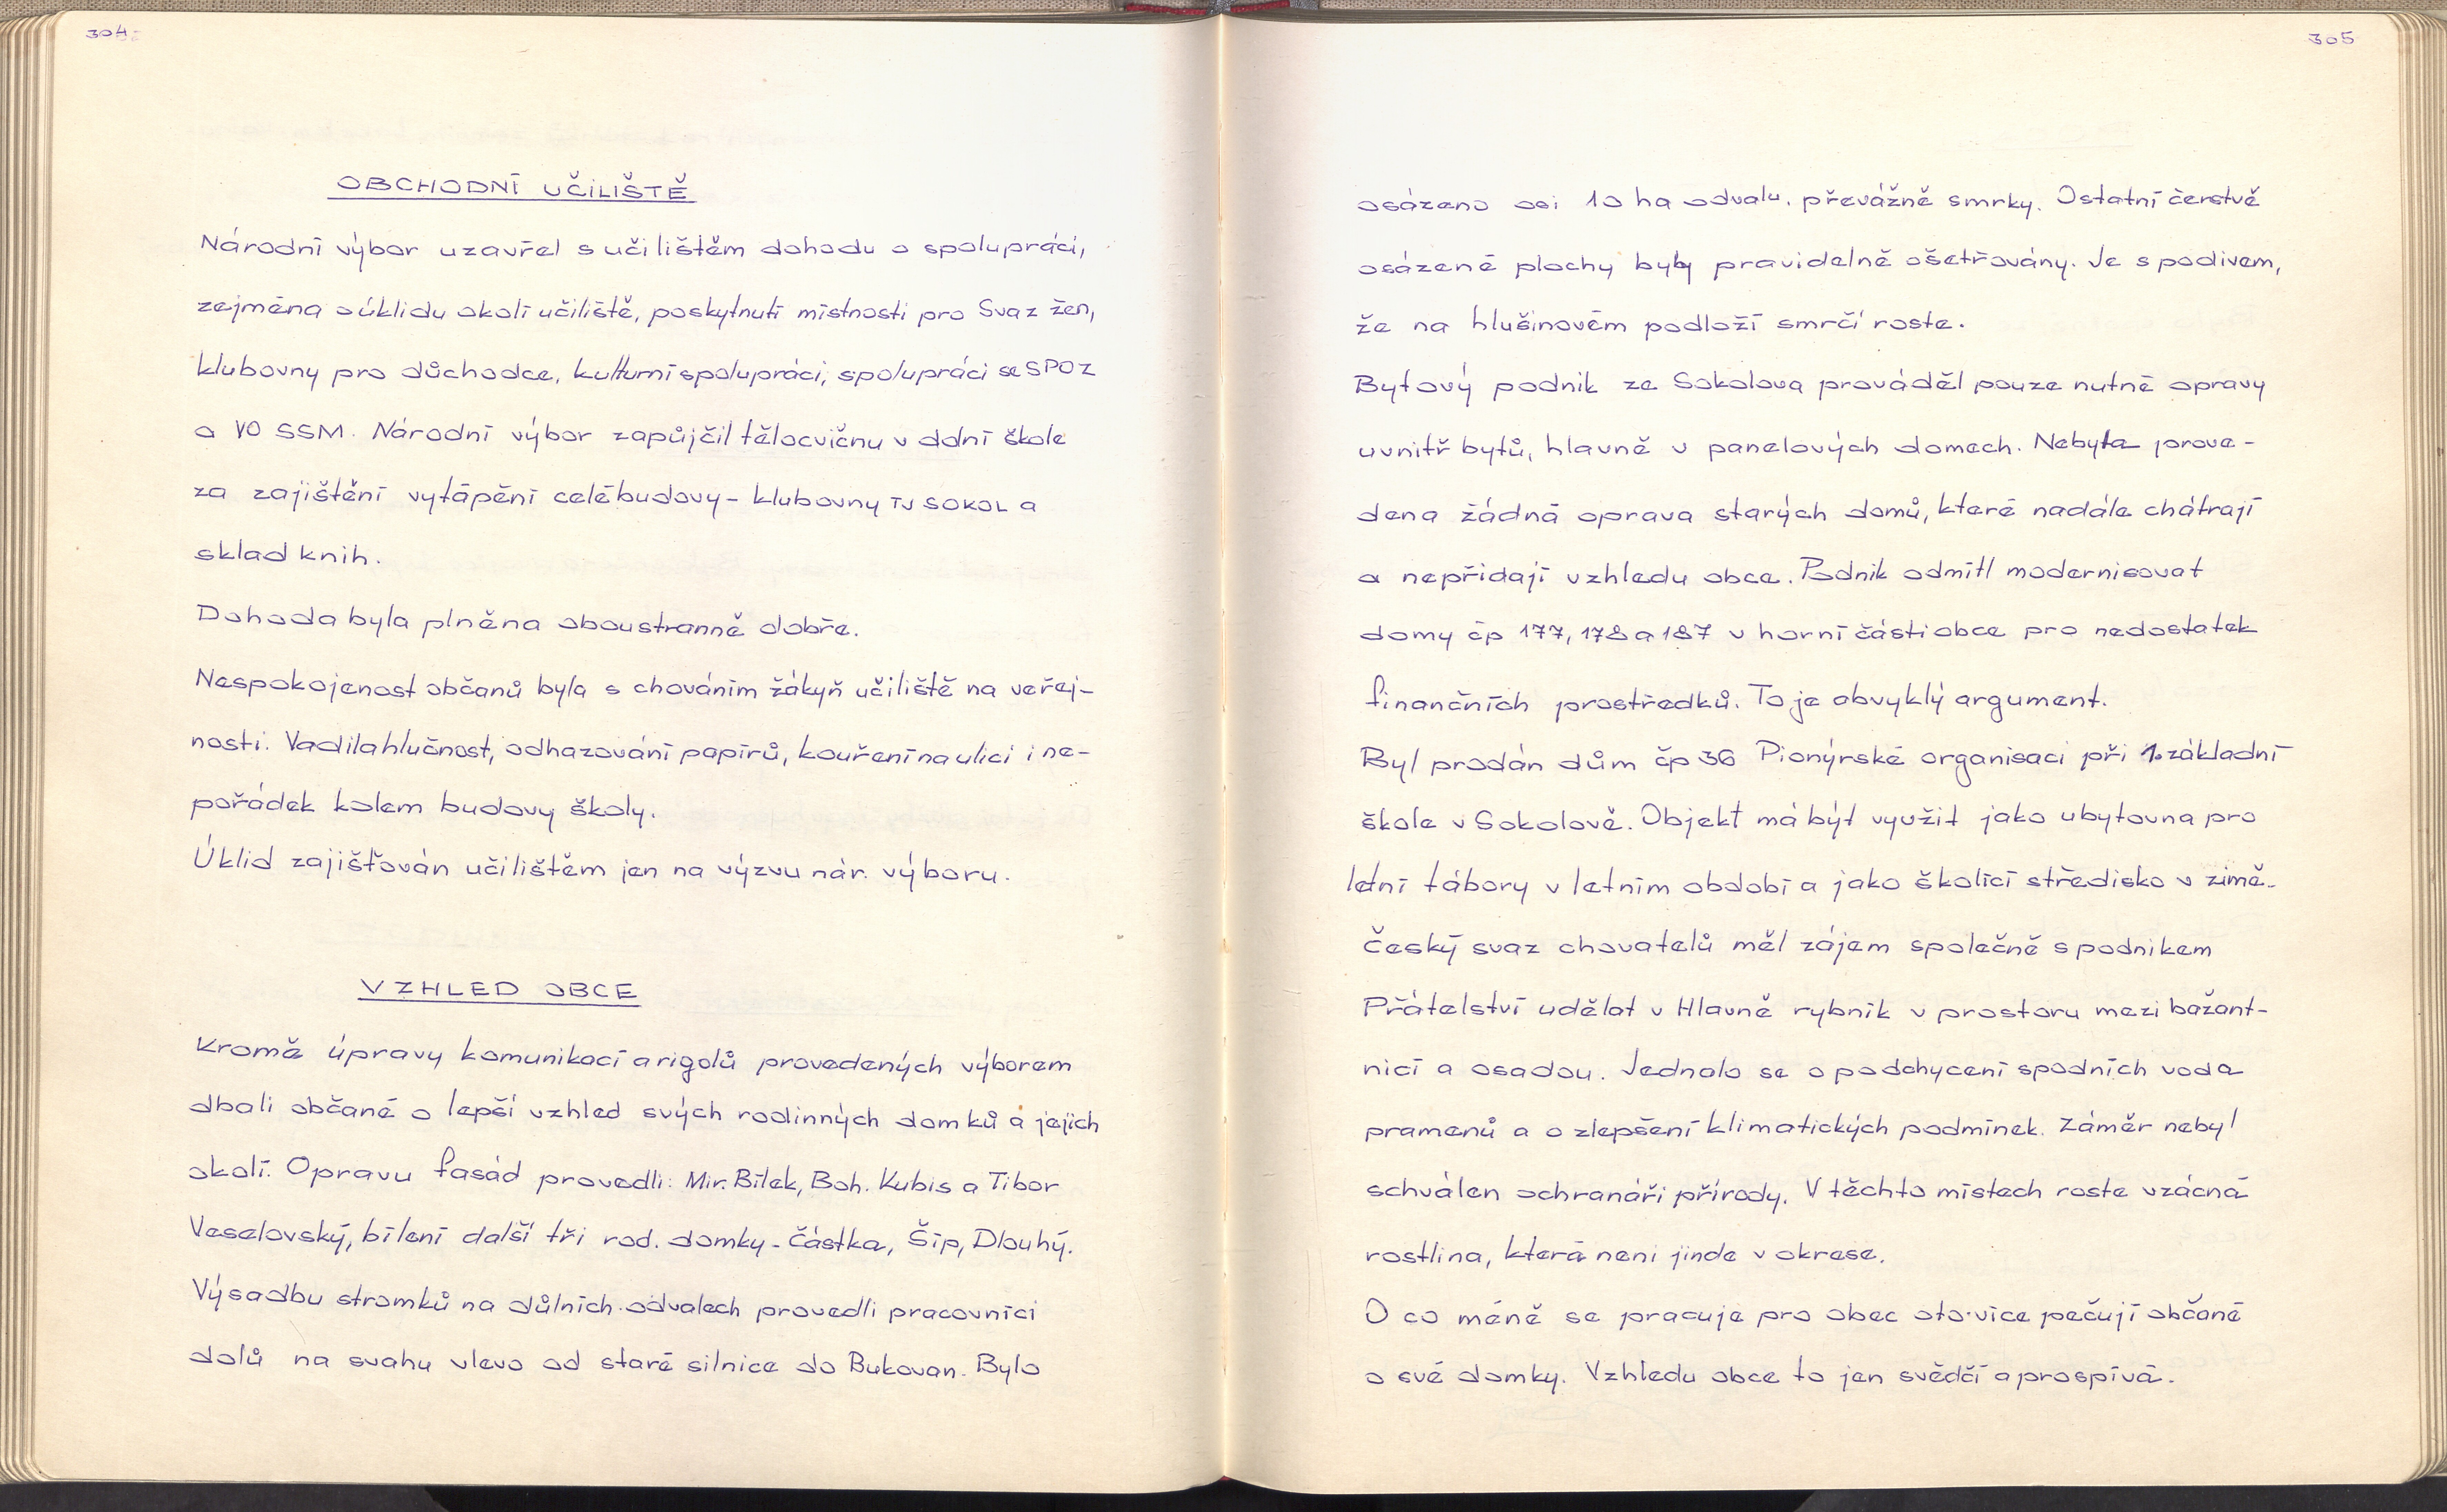 304
OBCHODNÍ UČILIŠTĚ
Národní výbor uzavřel s učilištěm dohodu o spolupráci,
zejména o úklidu okolí učiliště, poskytnutí místnosti pro Svaz žen,
klubovny pro důchodce, kulturní spolupráci, spolupráci se SPOZ
a VO SSM. Národní výbor zapůjčil tělocvičnu v dolní škole
za zajištění vytápění celé budovy – klubovny TJ SOKOL a
sklad knih.
Dohoda byla plněna oboustranně dobře.
Nespokojenost občanů byla s chováním žákyň učiliště na veřej-
nosti. Vadila hlučnost, odhazování papírů, kouření na ulici i ne-
pořádek kolem budovy školy.
Úklid zajišťován učilištěm jen na výzvu nár. výboru.
VZHLED OBCE
Kromě úpravy komunikací a rigolů provedených výborem
dbali občané o lepší vzhled svých rodinných domků a jejich
okolí. Opravu fasád provedli: Mir. Bílek, Boh. Kubis a Tibor
Veselovský, bílení další tři rod. domky – Částka, Šíp, Dlouhý.
Výsadbu stromků na důlních odvalech provedli pracovníci
dolů na svahu vlevo od staré silnice do Bukovan. Bylo
305
osázeno asi 10 ha odvalu, převážně smrky. Ostatní čerstvě
osázené plochy byly pravidelně ošetřovány. Je s podivem,
že na hlušinovém podloží smrčí roste.
Bytový podnik ze Sokolova prováděl pouze nutné opravy
uvnitř bytů, hlavně v panelových domech. Nebyla prove-
dena žádná oprava starých domů, které nadále chátrají
a nepřidají vzhledu obce. Podnik odmítl modernisovat
domy čp 177, 178 a 187 v horní části obce pro nedostatek
finančních prostředků. To je obvyklý argument.
Byl prodán dům čp 36 Pionýrské organisaci při 1. základní
škole v Sokolově. Objekt má být využit jako ubytovna pro
letní tábory v letním období a jako školící středisko v zimě.
Český svaz chovatelů měl zájem společně s podnikem
Přátelství udělat v Hlavně rybník v prostoru mezi bažant-
nicí a osadou. Jednalo se o podchycení spodních vod a
pramenů a o zlepšení klimatických podmínek. Záměr nebyl
schválen ochranáři přírody. V těchto místech roste vzácná
rostlina, která není jinde v okrese.
O co méně se pracuje pro obec oto více pečují občané
o své domky. Vzhledu obce to jen svědčí a prospívá.